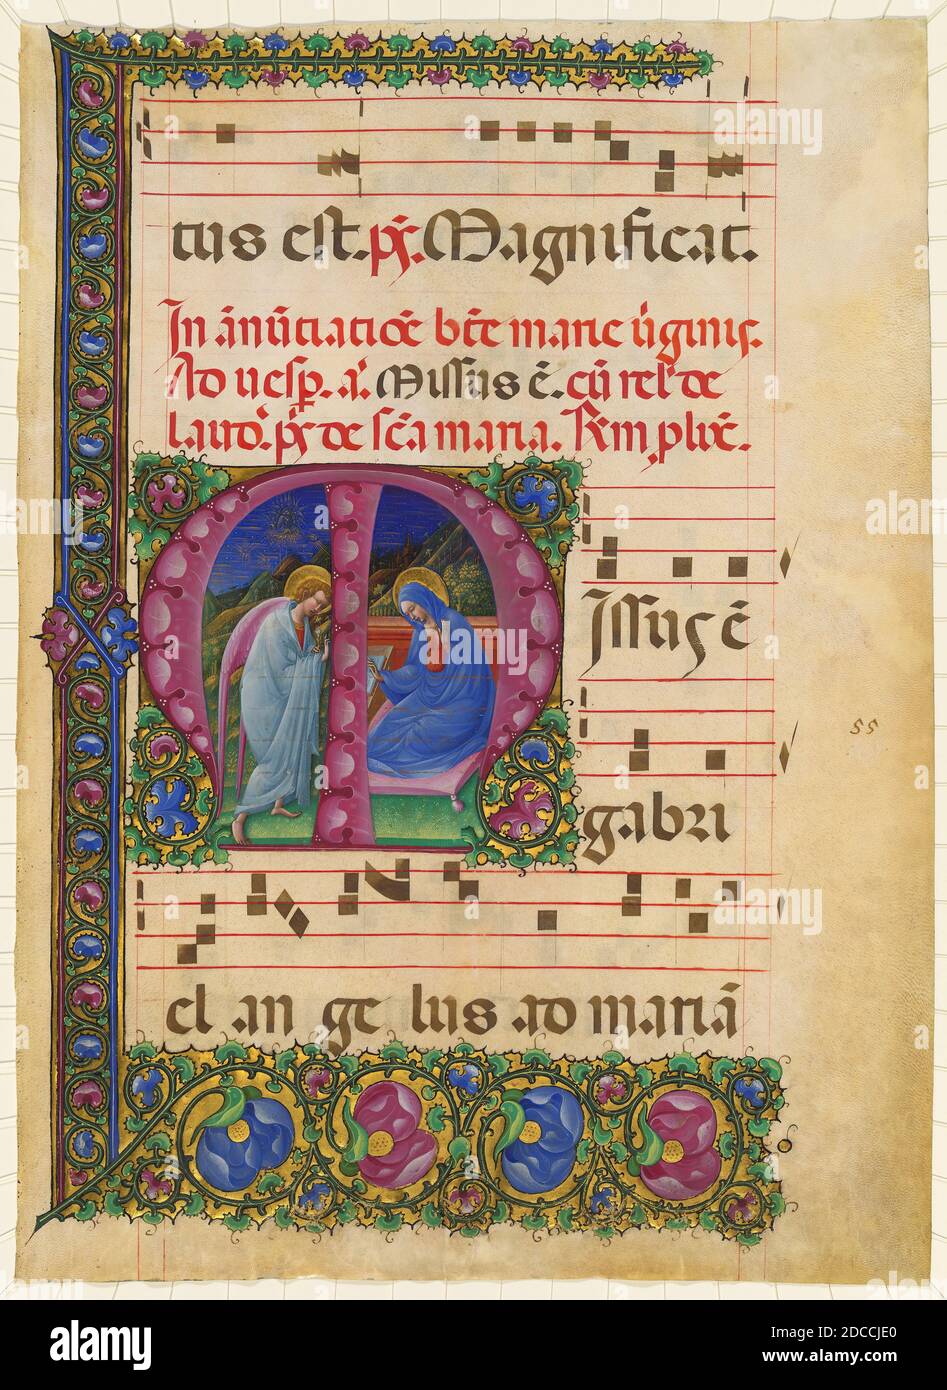 tus est. ps. Magnificat.
In ānūtiatiōe bt̄e marie ūginis.
Ad uesp. a. Missus ē. cū rel. de
laud. ps. de sc̄a maria.
M
issus ē
55
gabri
el an ge lus ad mariā
alamy
Image ID: 2DCCJE0
www.alamy.com